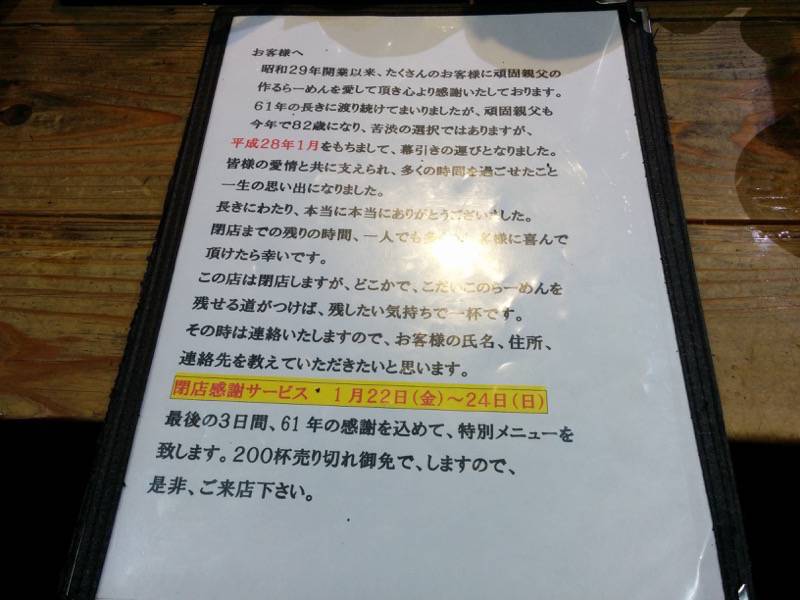 お客様へ
昭和29年開業以来、たくさんのお客様に頑固親父の
作るらーめんを愛して頂き心より感謝いたしております。
61年の長きに渡り続けてまいりましたが、頑固親父も
今年で82歳になり、苦渋の選択ではありますが、
平成28年1月をもちまして、幕引きの運びとなりました。
皆様の愛情と共に支えられ、多くの時間を過ごせたこと
一生の思い出になりました。
長きにわたり、本当に本当にありがとうございました。
閉店までの残りの時間、一人でも多 客様に喜んで
頂けたら幸いです。
この店は閉店しますが、どこかで、こだいこのらーめんを
残せる道がつけば、残したい気持ちで一杯です。
その時は連絡いたしますので、お客様の氏名、住所、
連絡先を教えていただきたいと思います。
閉店感謝サービス ・ 1月22日(金)～24日(日)
最後の3日間、61年の感謝を込めて、特別メニューを
致します。200杯売り切れ御免で、しますので、
是非、ご来店下さい。